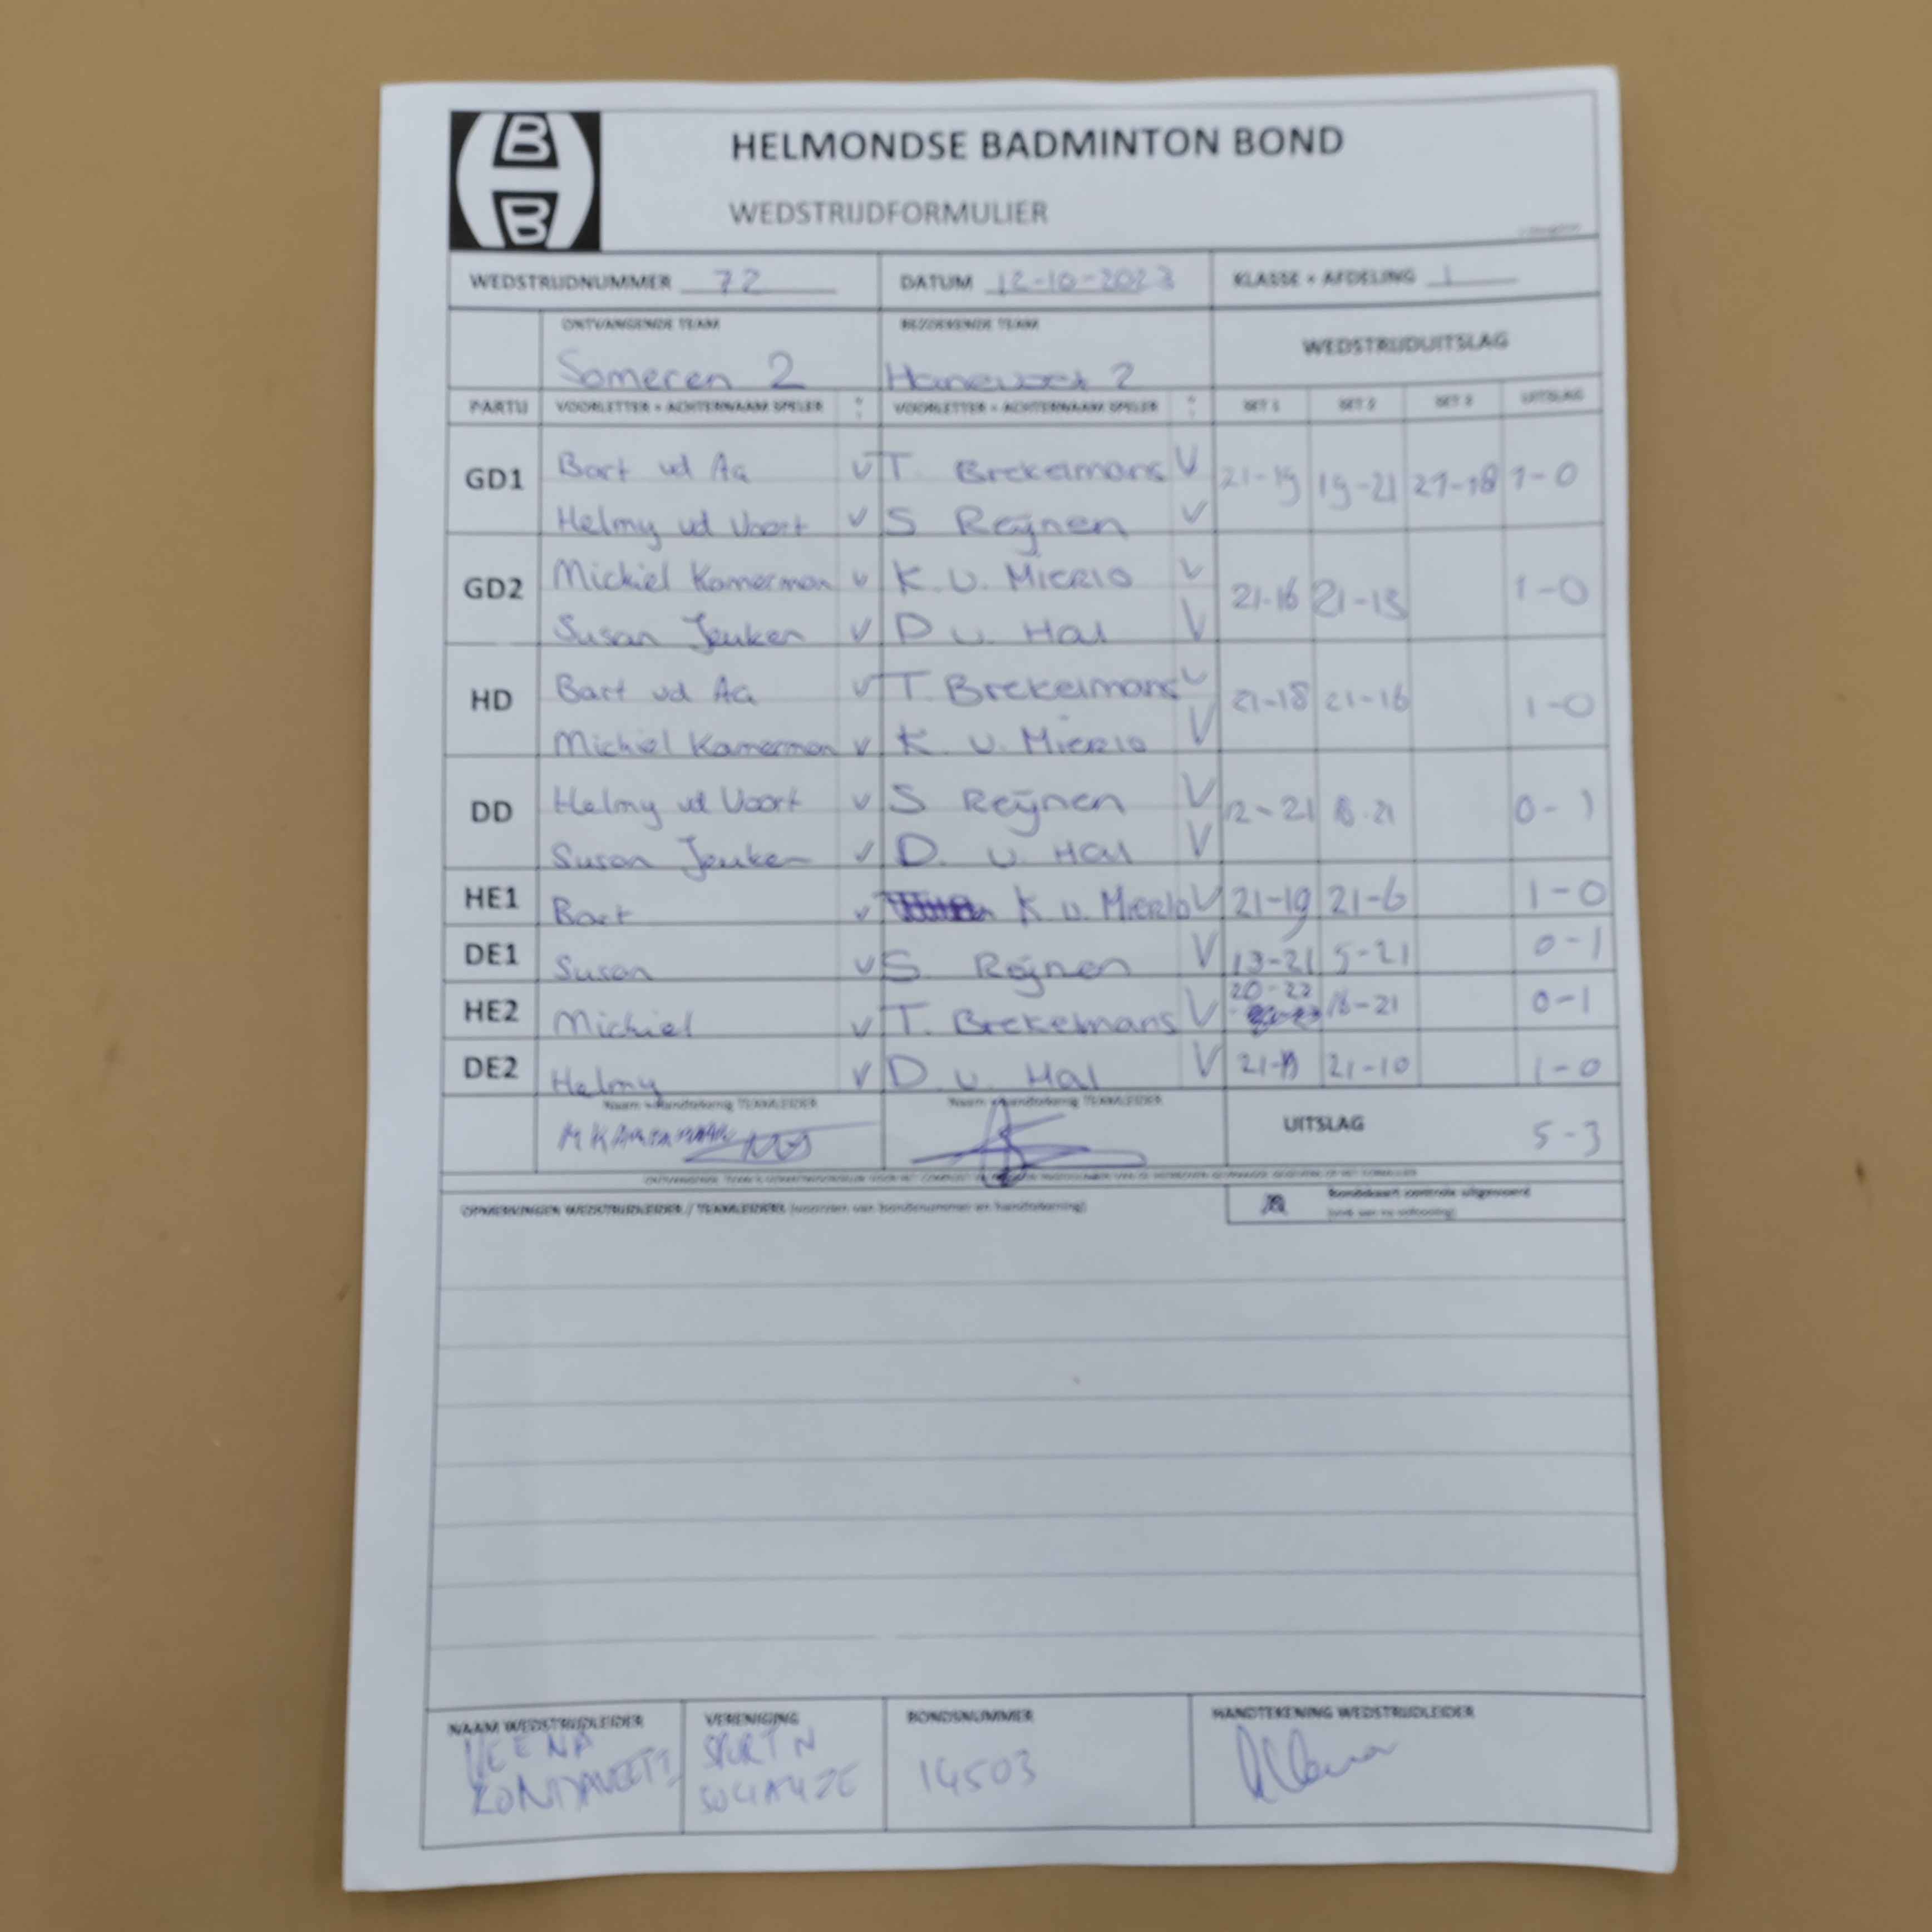 B
B
HELMONDSE BADMINTON BOND
WEDSTRIJDFORMULIER
WEDSTRIJDNUMMER 72 DATUM 12-10-2023 KLASSE + AFDELING 1
ONTVANGENDE TEAM BEZOEKENDE TEAM WEDSTRIJDUITSLAG
Someren 2 2
PARTIJ VOORLETTER + ACHTERNAAM SPELER VOORLETTER + ACHTERNAAM SPELER SET 1 SET 2 SET 3 UITSLAG
GD1 Bart vd Aa V T. Brekelmans V 21-19 19-21 21-18 1-0
Helmy vd Voort V S Reijnen V
GD2 Michiel Kamerman V K. v. Mierlo V 21-16 21-13 1-0
Susan Jeuken V D v. Hal V
HD Bart vd Aa V T. Brekelmans V 21-18 21-16 1-0
Michiel Kamerman V K. v. Mierlo V
DD Helmy vd Voort V S Reijnen V 12-21 21 0-1
Susan Jeuken V D. v. Hal V
HE1 Bart V K v. Mierlo V 21-19 21-6 1-0
DE1 Susan V S. Reijnen V 13-21 5-21 0-1
HE2 Michiel V T. Brekelmans V 20-22 16-21 0-1
DE2 Helmy V D v. Hal V 21- 21-10 1-0
Naam + handtekening TEAMLEIDER Naam + handtekening TEAMLEIDER UITSLAG 5-3
M Kamerman
OPMERKINGEN WEDSTRIJDLEIDER / TEAMLEIDERS (voorzien van bondsnummer en handtekening) Bondskaart controle uitgevoerd
NAAM WEDSTRIJDLEIDER VERENIGING BONDSNUMMER HANDTEKENING WEDSTRIJDLEIDER
VEENA 14503